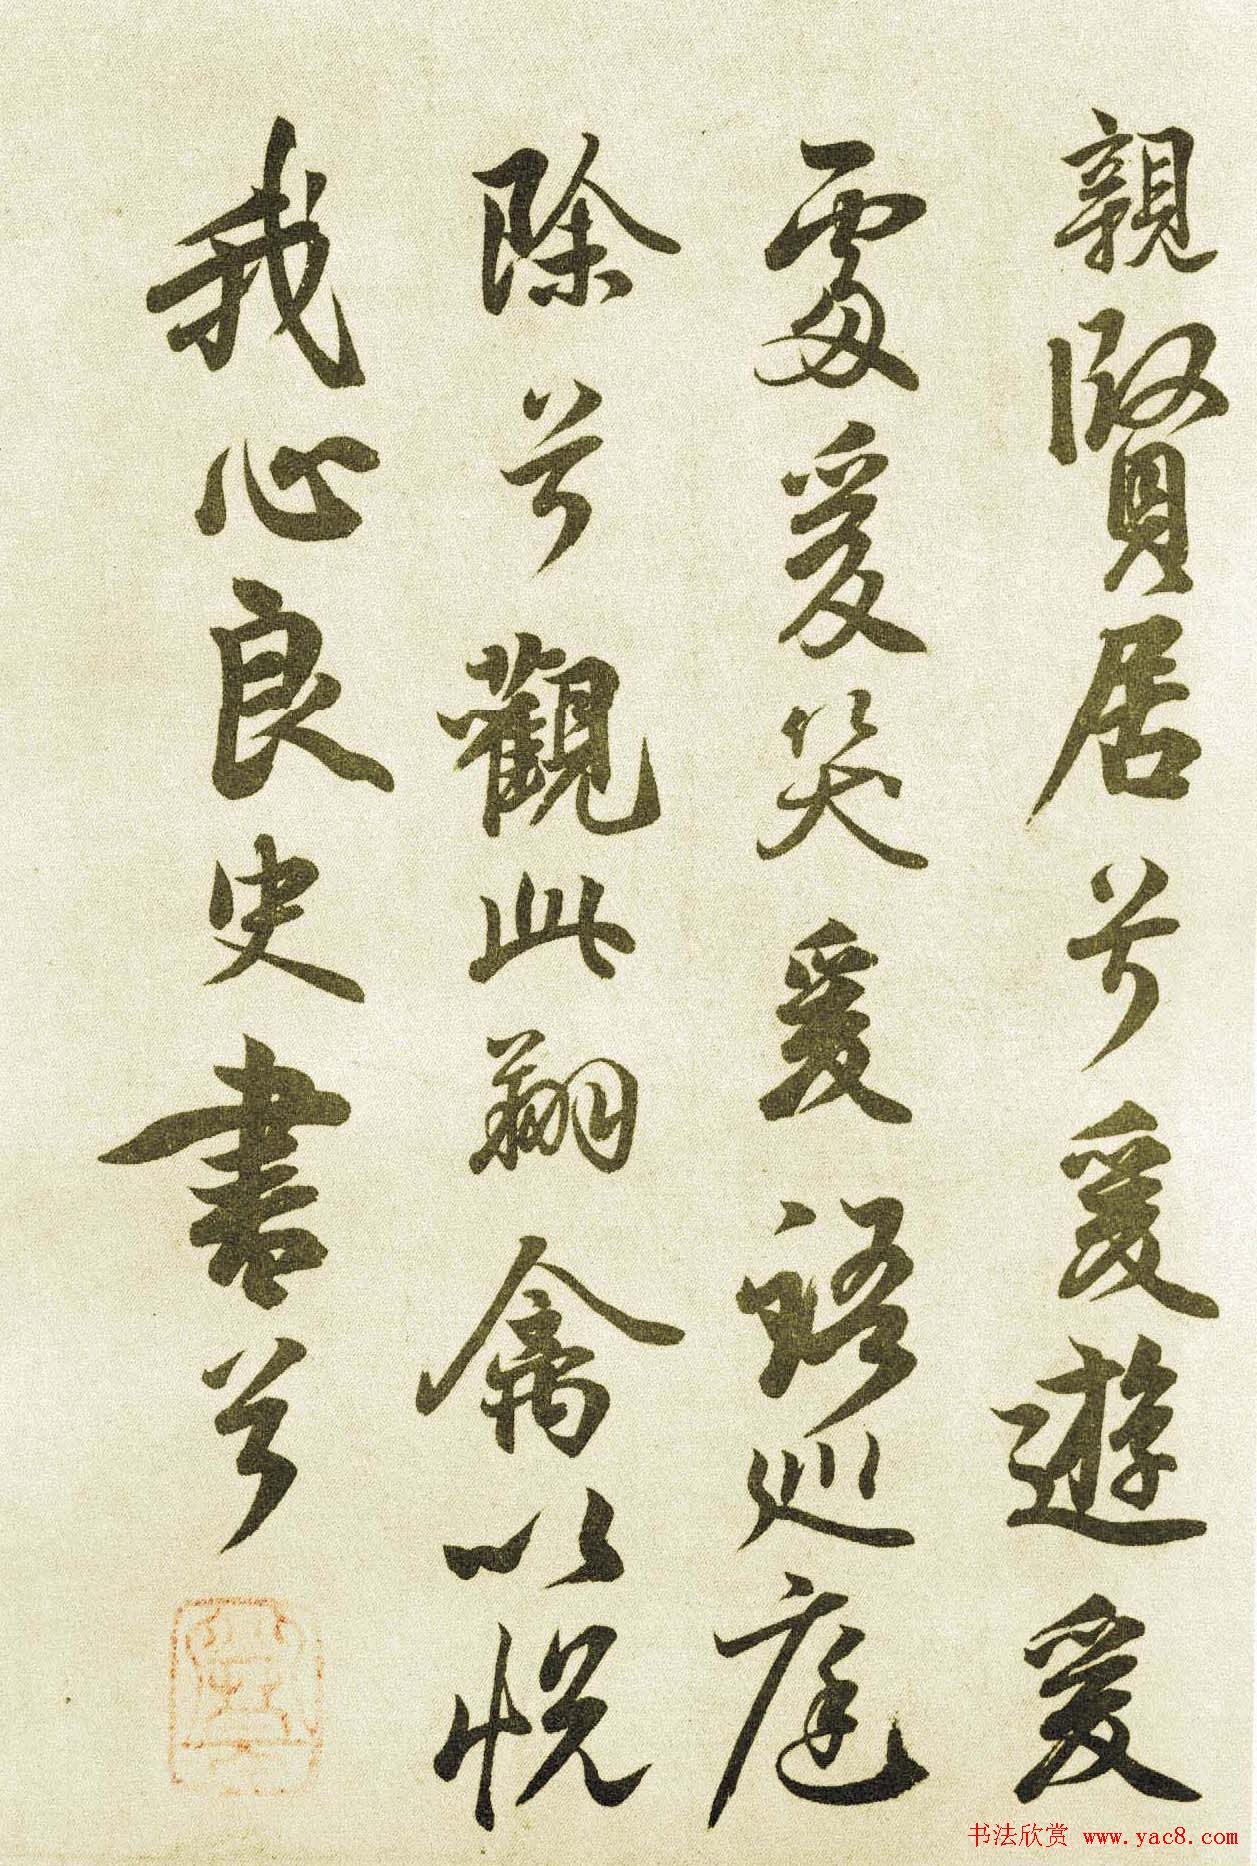 親賢居兮爰遊爰
處爰笑爰語巡庭
除兮觀此翔禽以悅
我心良史書兮
书法欣赏 www.yac8.com